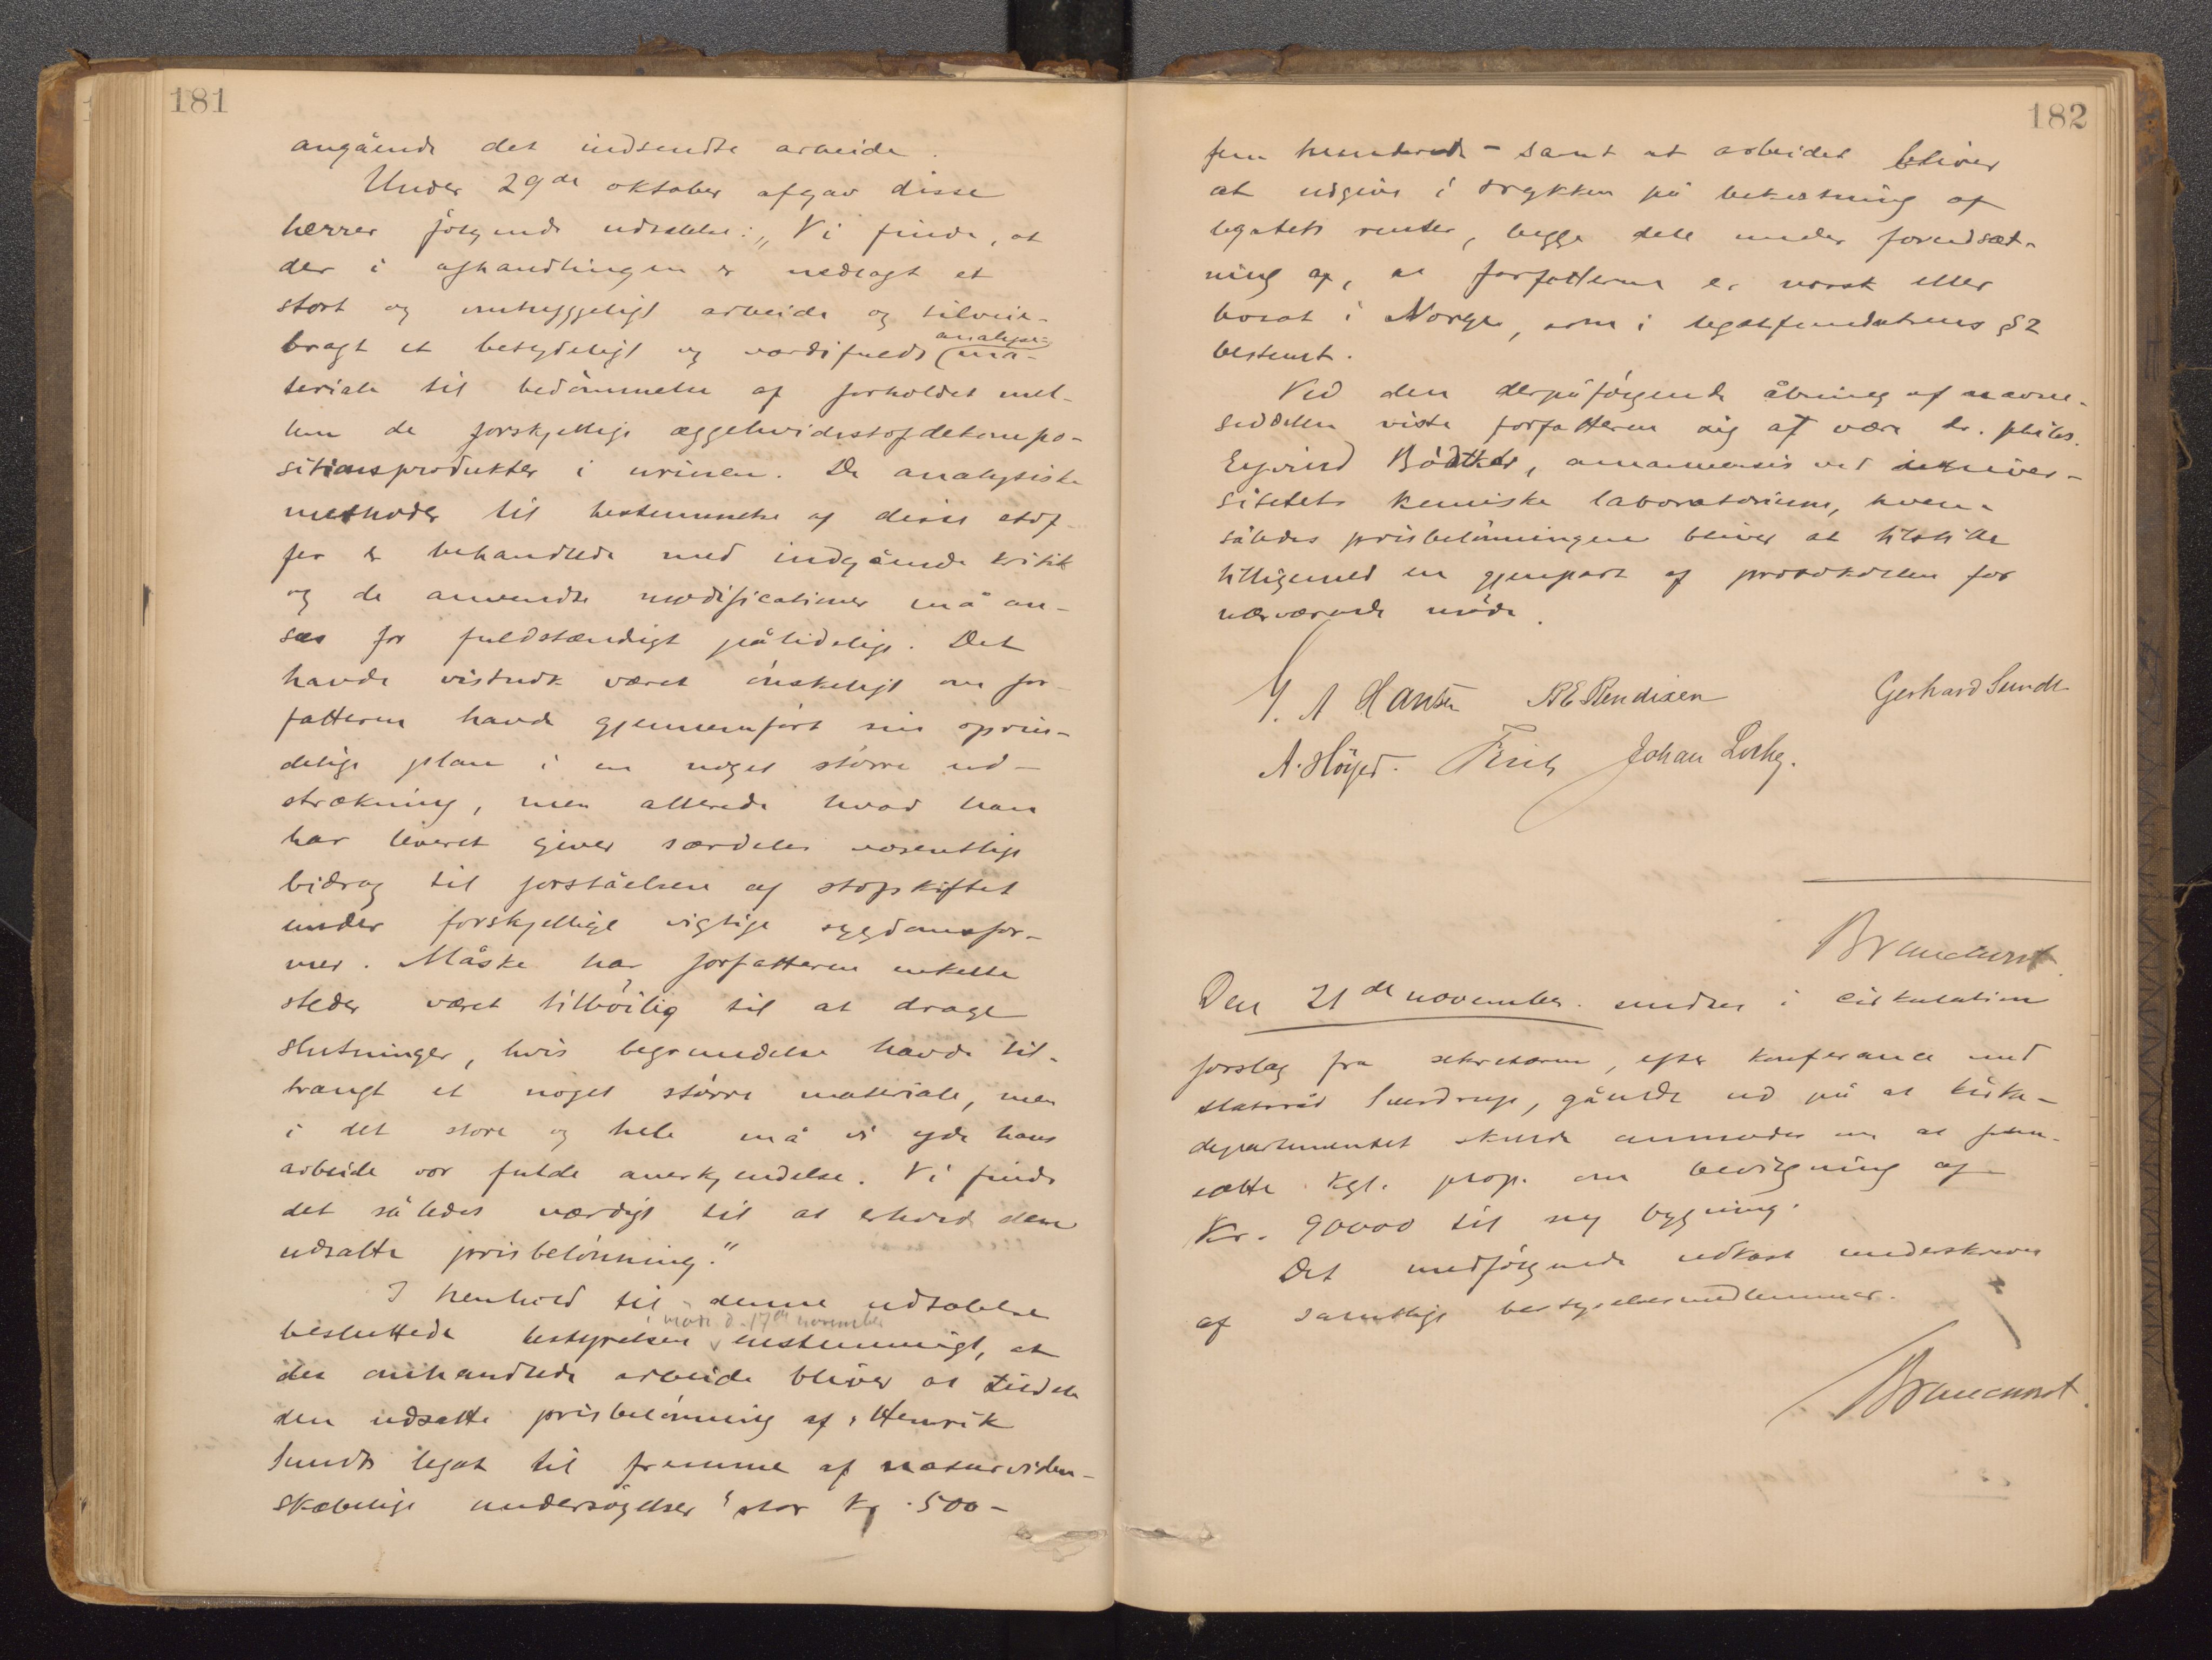 181
angående det indsendte arbeide.
Under 29de oktober afgav disse
herrer følgende udtalelse: „Vi finde, at
der i afhandlingen er nedlagt et
stort og omhyggeligt arbeide og tilveie-
bragt et betydeligt og værdifuldt analyse- (ma-
teriale til bedømmelse af forholdet mel-
lem de forskjellige æggehvidestofdekompo-
sitionsprodukter i urinen. De analysiske
methoder til bestemmelse af disse stof-
fer er behandlede med indgående kritik
og de anvendte modificationer må an-
sees for fuldstændigt pålidelige. Det
havde vistnok været ønskeligt om for-
fatteren havde gjennemført sin oprin-
delige plan i en noget større ud-
strækning, men allerede hvad han
har leveret giver særdeles væsentlige
bidrag til forståelsen af stofskiftet
under forskjellige vigtige sygdomsfor-
mer. Måske har forfatteren enkelte
steder været tilbøilig til at drage
slutninger, hvis begrundelse havde til-
trængt et noget større materiale, men
i det store og hele må vi yde hans
arbeide vor fulde anerkjendelse. Vi finde
det således værdigt til at erholde den
udsatte prisbelønning."
I henhold til denne udtalelse
besluttede bestyrelsen i møde d. 17de november enstemmigt, at
det omhandlede arbeide bliver at tildele
den udsatte prisbelønning af „Henrik
Sundts legat til fremme af naturviden-
skabelige undersøgelser" stor Kr. 500 –
182
fem hundrede – samt at arbeidet bliver
at udgive i trykken på bekostning af
legatets renter, begge dele under forudsæt-
ning af, at forfatteren er norsk eller
bosat i Norge, som i legatfundatsens §2
bestemt.
Ved den derpåfølgende åbning af navne-
seddelen viste forfatteren sig at være dr. philos.
Eyvind Bødtker, amanuensis ved univer-
sitetets kemiske laboratorium, hvem
således prisbelønningen bliver at tilstille
tilligemed en gjenpart af protokollen for
nærværende møde.
G. A Hansen BE Bendixen Gerhard Sundt
A. Høyer. Friele Johan Lothe.
Brunchorst.
Den 21de november. sendtes i cirkulation
forslag fra sekretæren, efter konferance med
statsråd Sverdrup, gående ud på at kirke-
departementet skulde anmodes om at frem-
sætte kgl. prop. om bevilgning af
Kr. 90000 til ny bygning.
Det medfølgende udkast underskreves
af samtlige bestyrelsesmedlemmer.
Brunchorst.